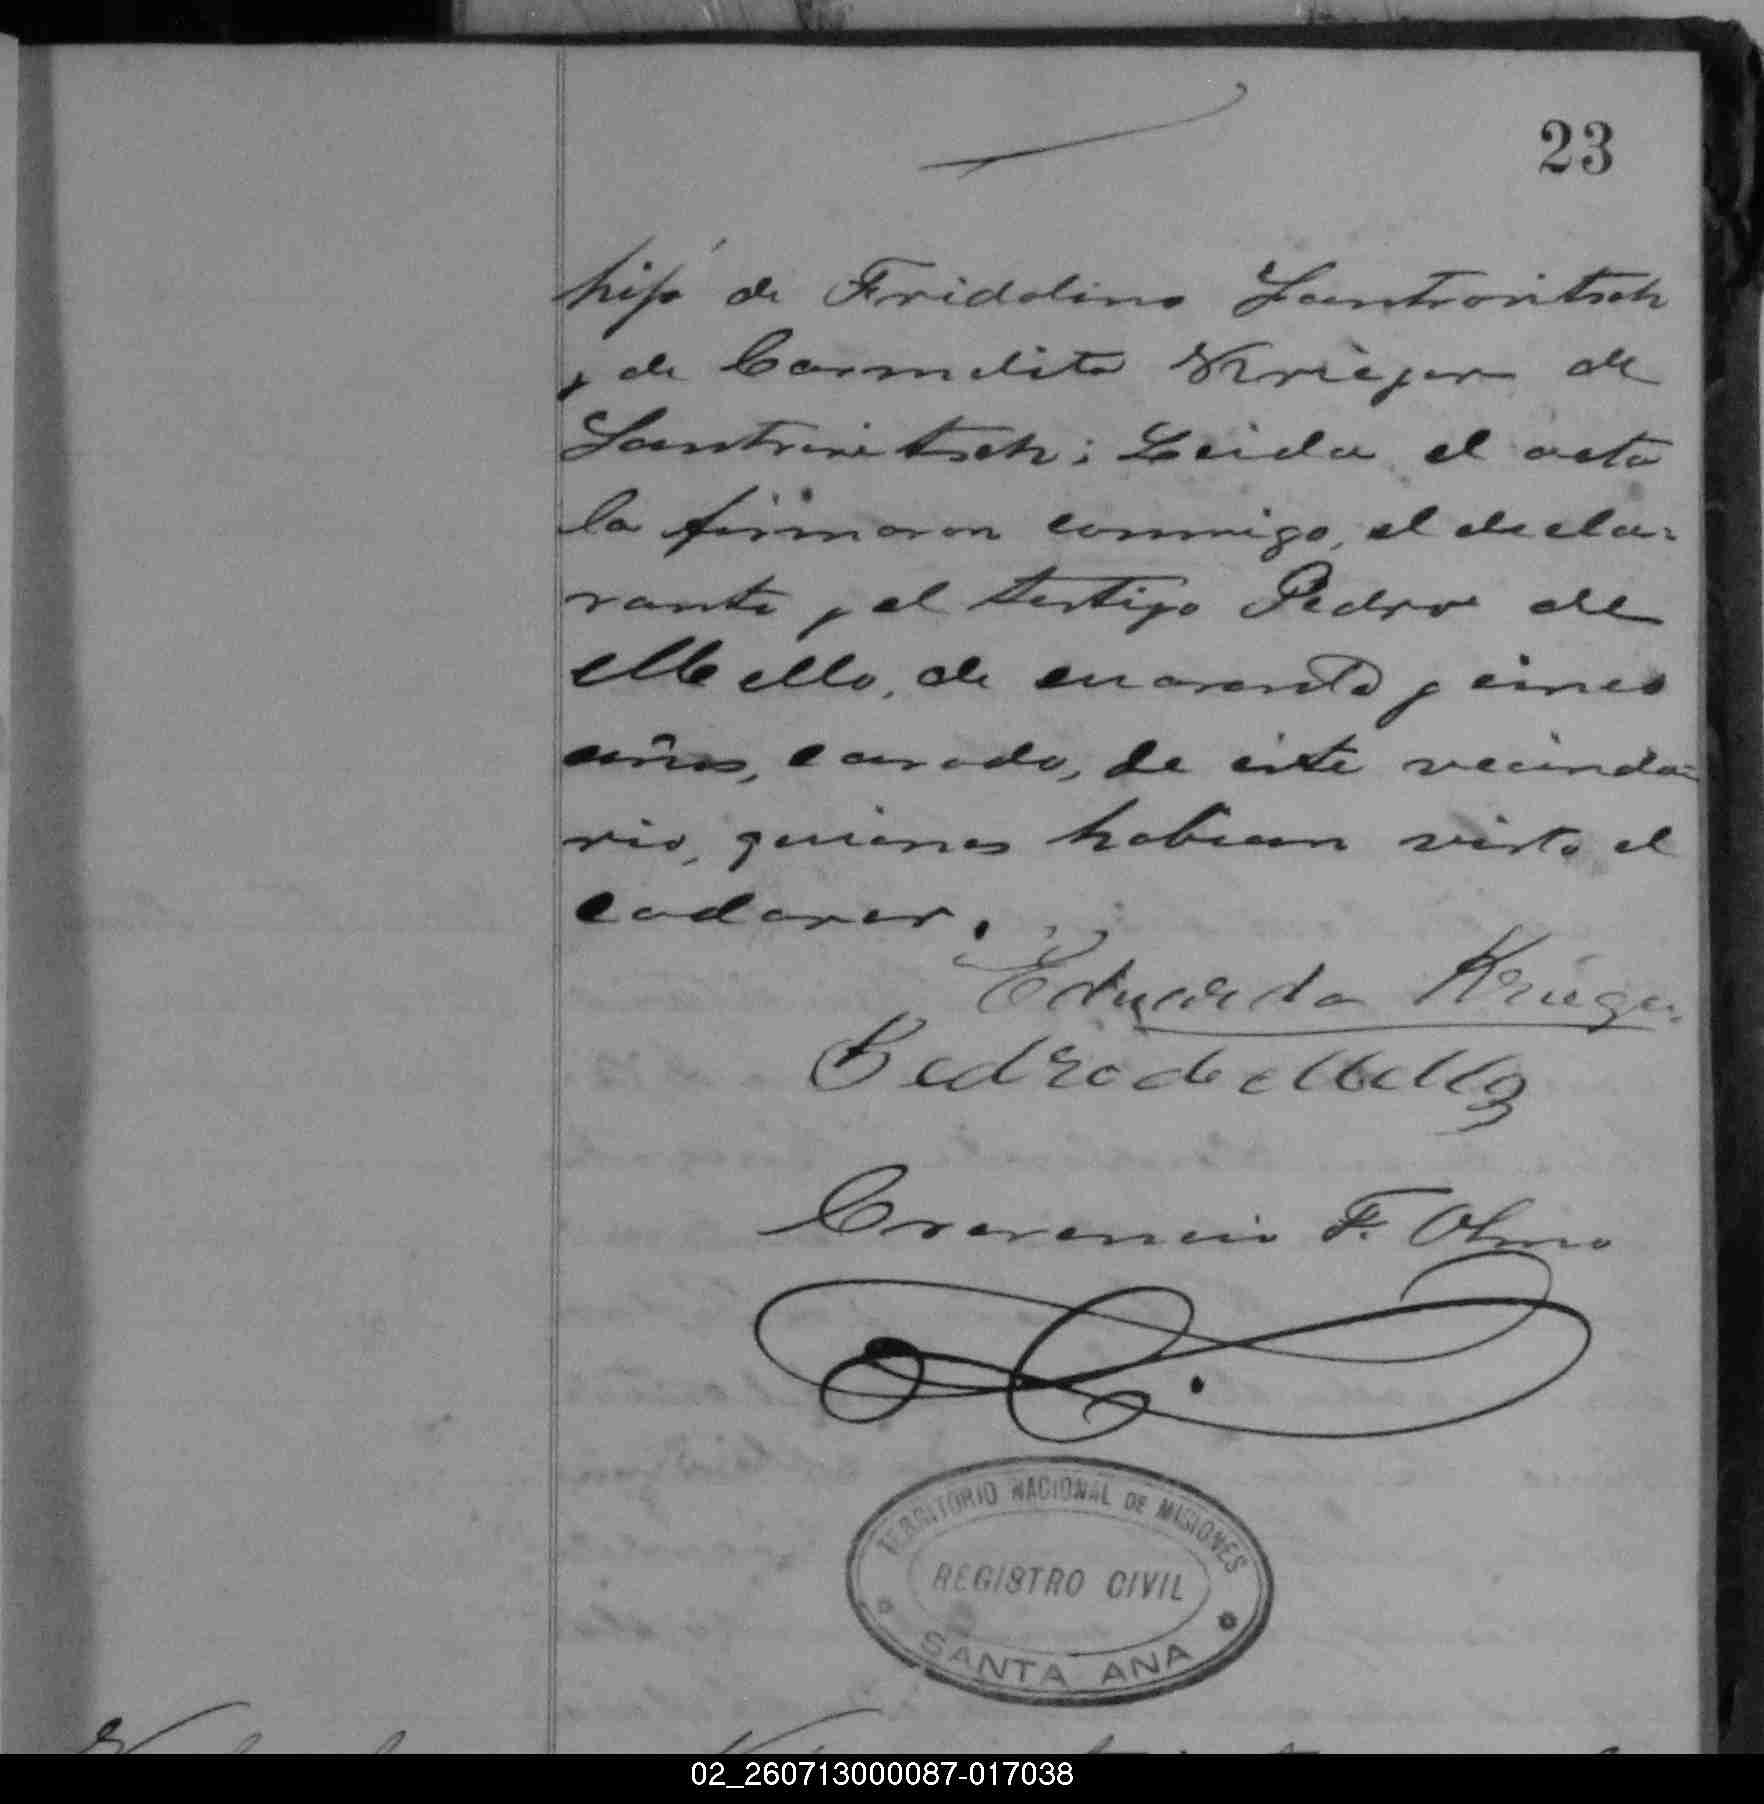 23
hijo de Fridolino Lantronitsch
y de Carmelita Krieger de
Lantronitsch; Leida el acta
la firmaron conmigo, el decla=
rante y el testigo Pedro de
Mello, de cuarenta y cinco
años, casado, de este vecinda=
rio, quienes habian visto el
cadaver.
Eduardo Krieger
Pedro de Mello
Cresencio F. Olmo
TERRITORIO NACIONAL DE MISIONES
REGISTRO CIVIL
SANTA ANA
02_260713000087-017038